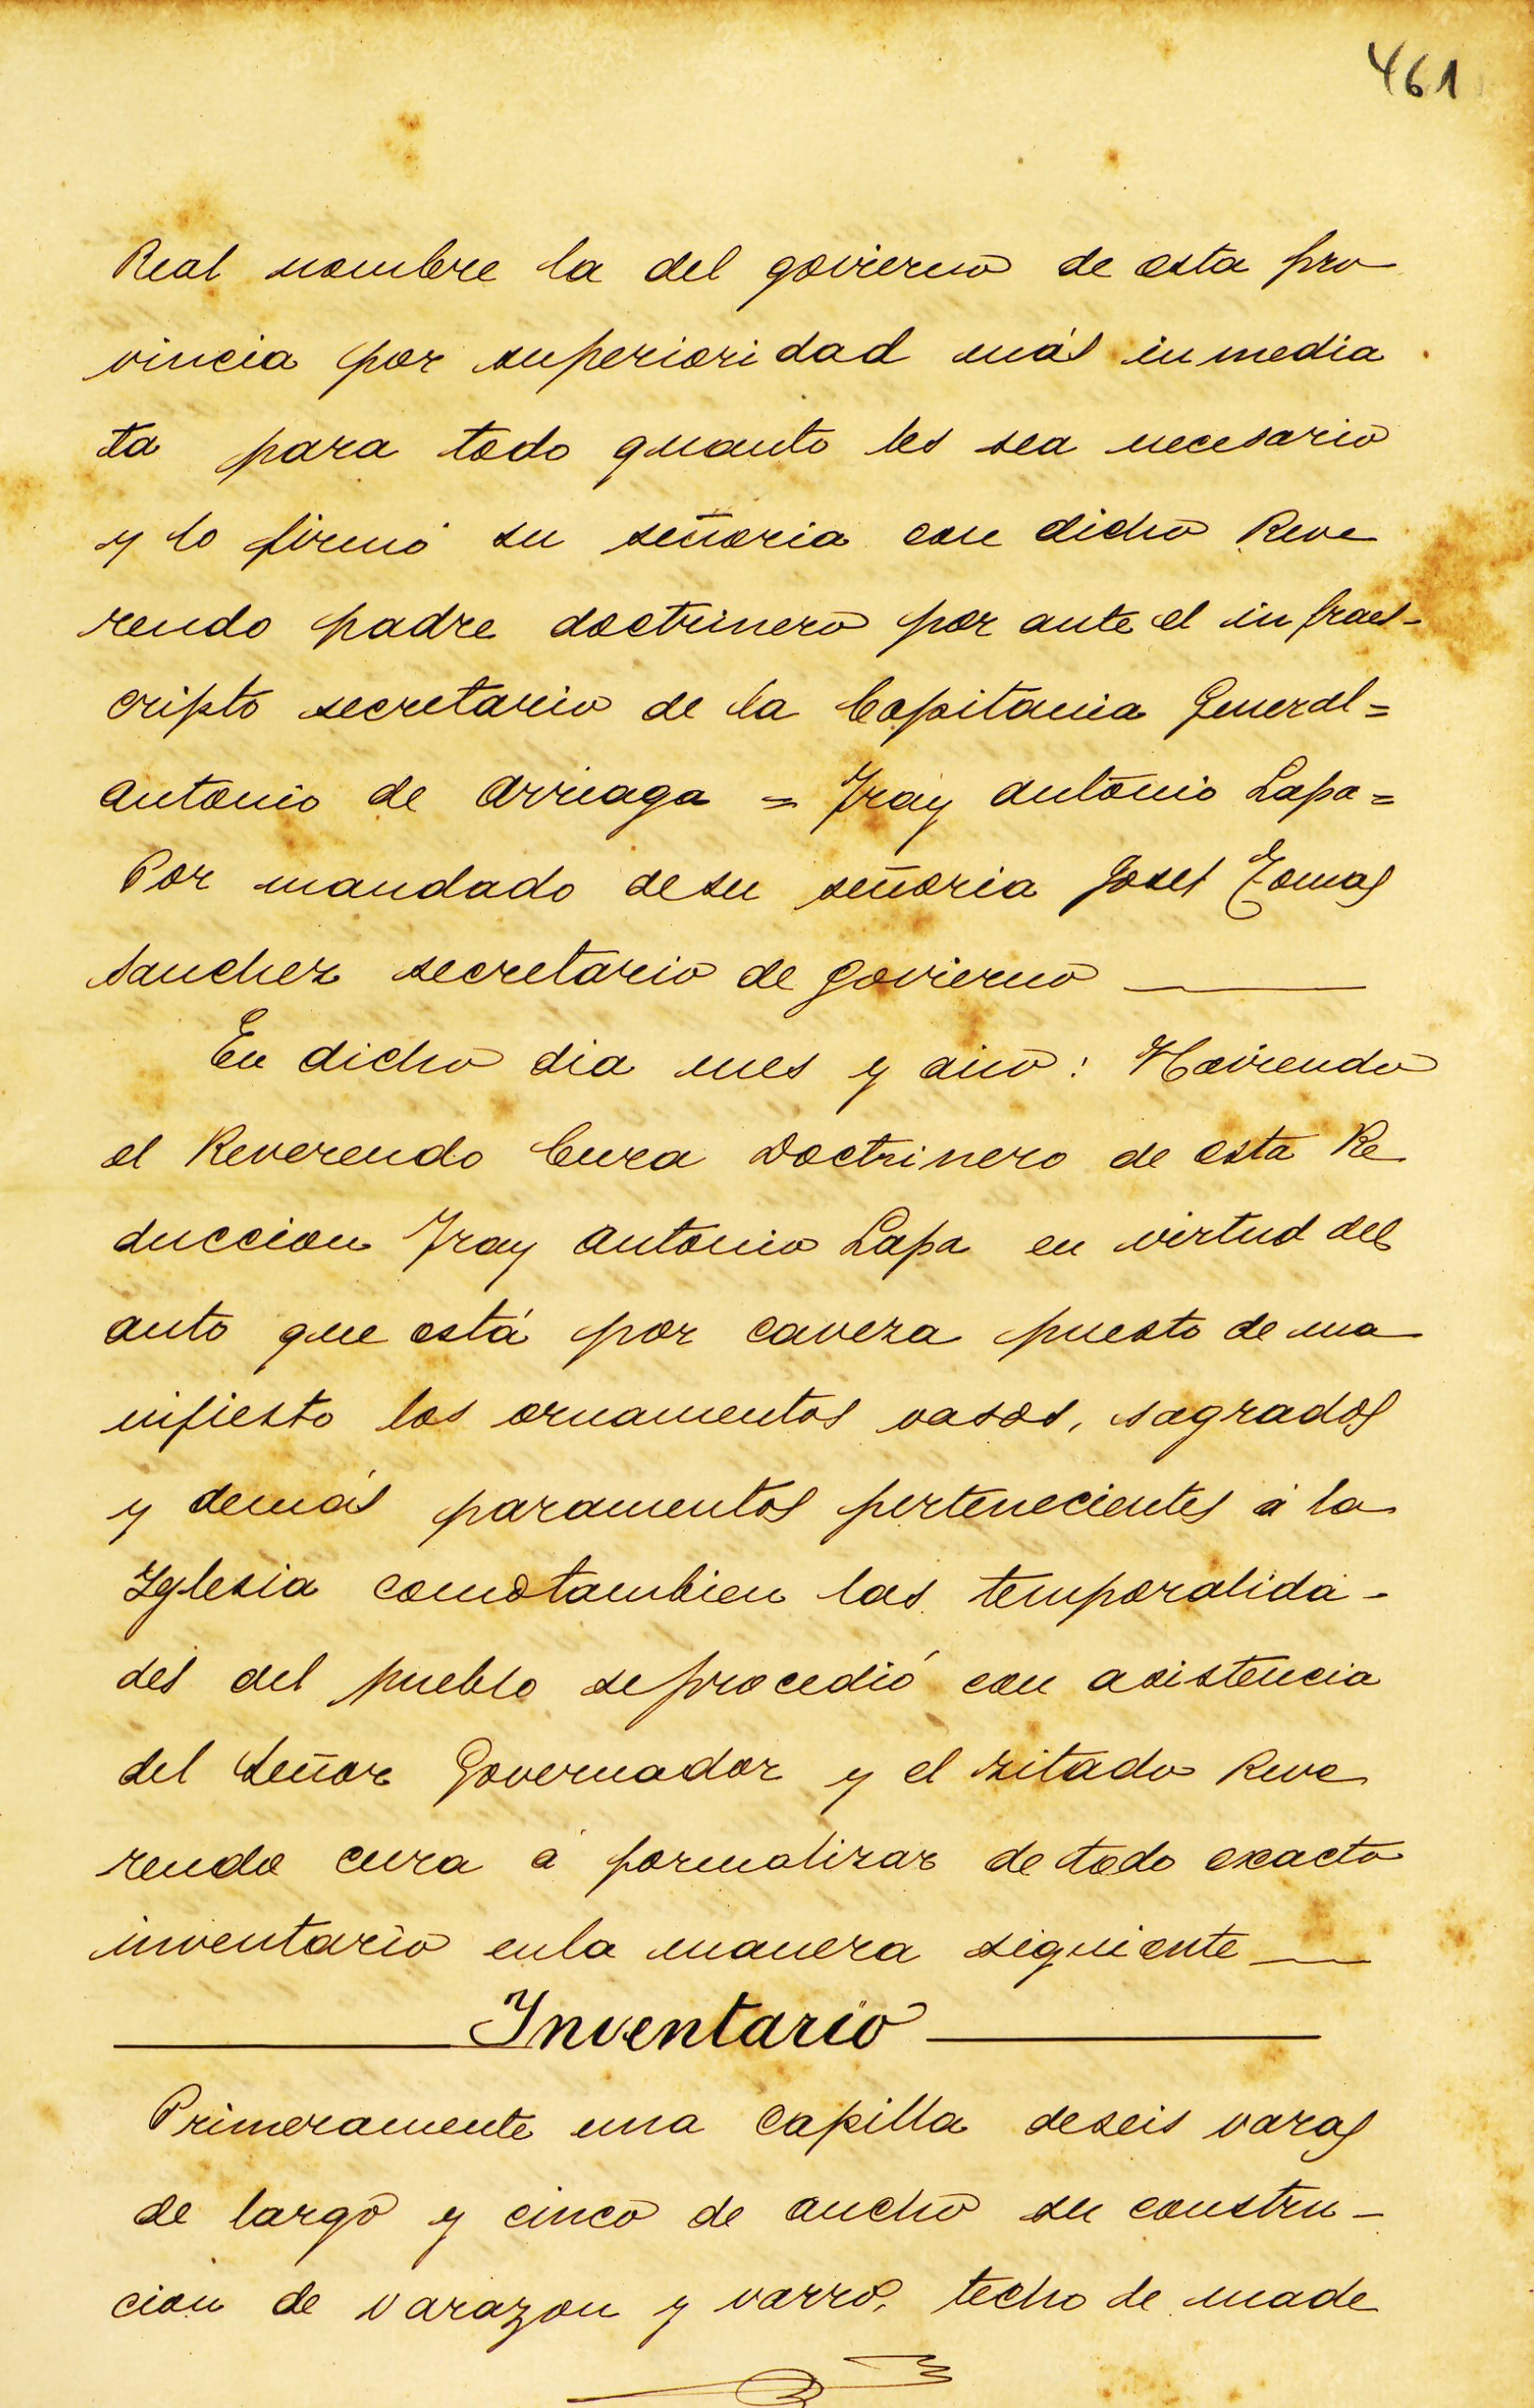 461
Real nombre la del govierno de esta pro
vincia por superioridad más inmedia
ta para todo quanto les sea necesario
y lo firmó su señoria con dicho Reve
rendo padre doctrinero por ante el infraes-
cripto secretario de la Capitania General=
Antonio de Arriaga = Fray Antonio Lapa=
Por mandado de su señoria Josef Tomas
Sanchez secretario de govierno
En dicho dia mes y año: Haviendo
el Reverendo Cura Doctrinero de esta Re
duccion Fray Antonio Lapa en virtud del
auto que está por caveza puesto de ma
nifiesto los ornamentos vasos, sagrados
y demás paramentos pertenecientes á la
Yglesia como tambien las temporalida-
des del pueblo se procedió con asistencia
del Señor Governador y el zitado Reve
rendo cura á formalizar de todo exacto
inventario en la manera siguiente
Inventario
Primeramente una capilla de seis varas
de largo y cinco de ancho su constru-
cion de varazon y varro, techo de made